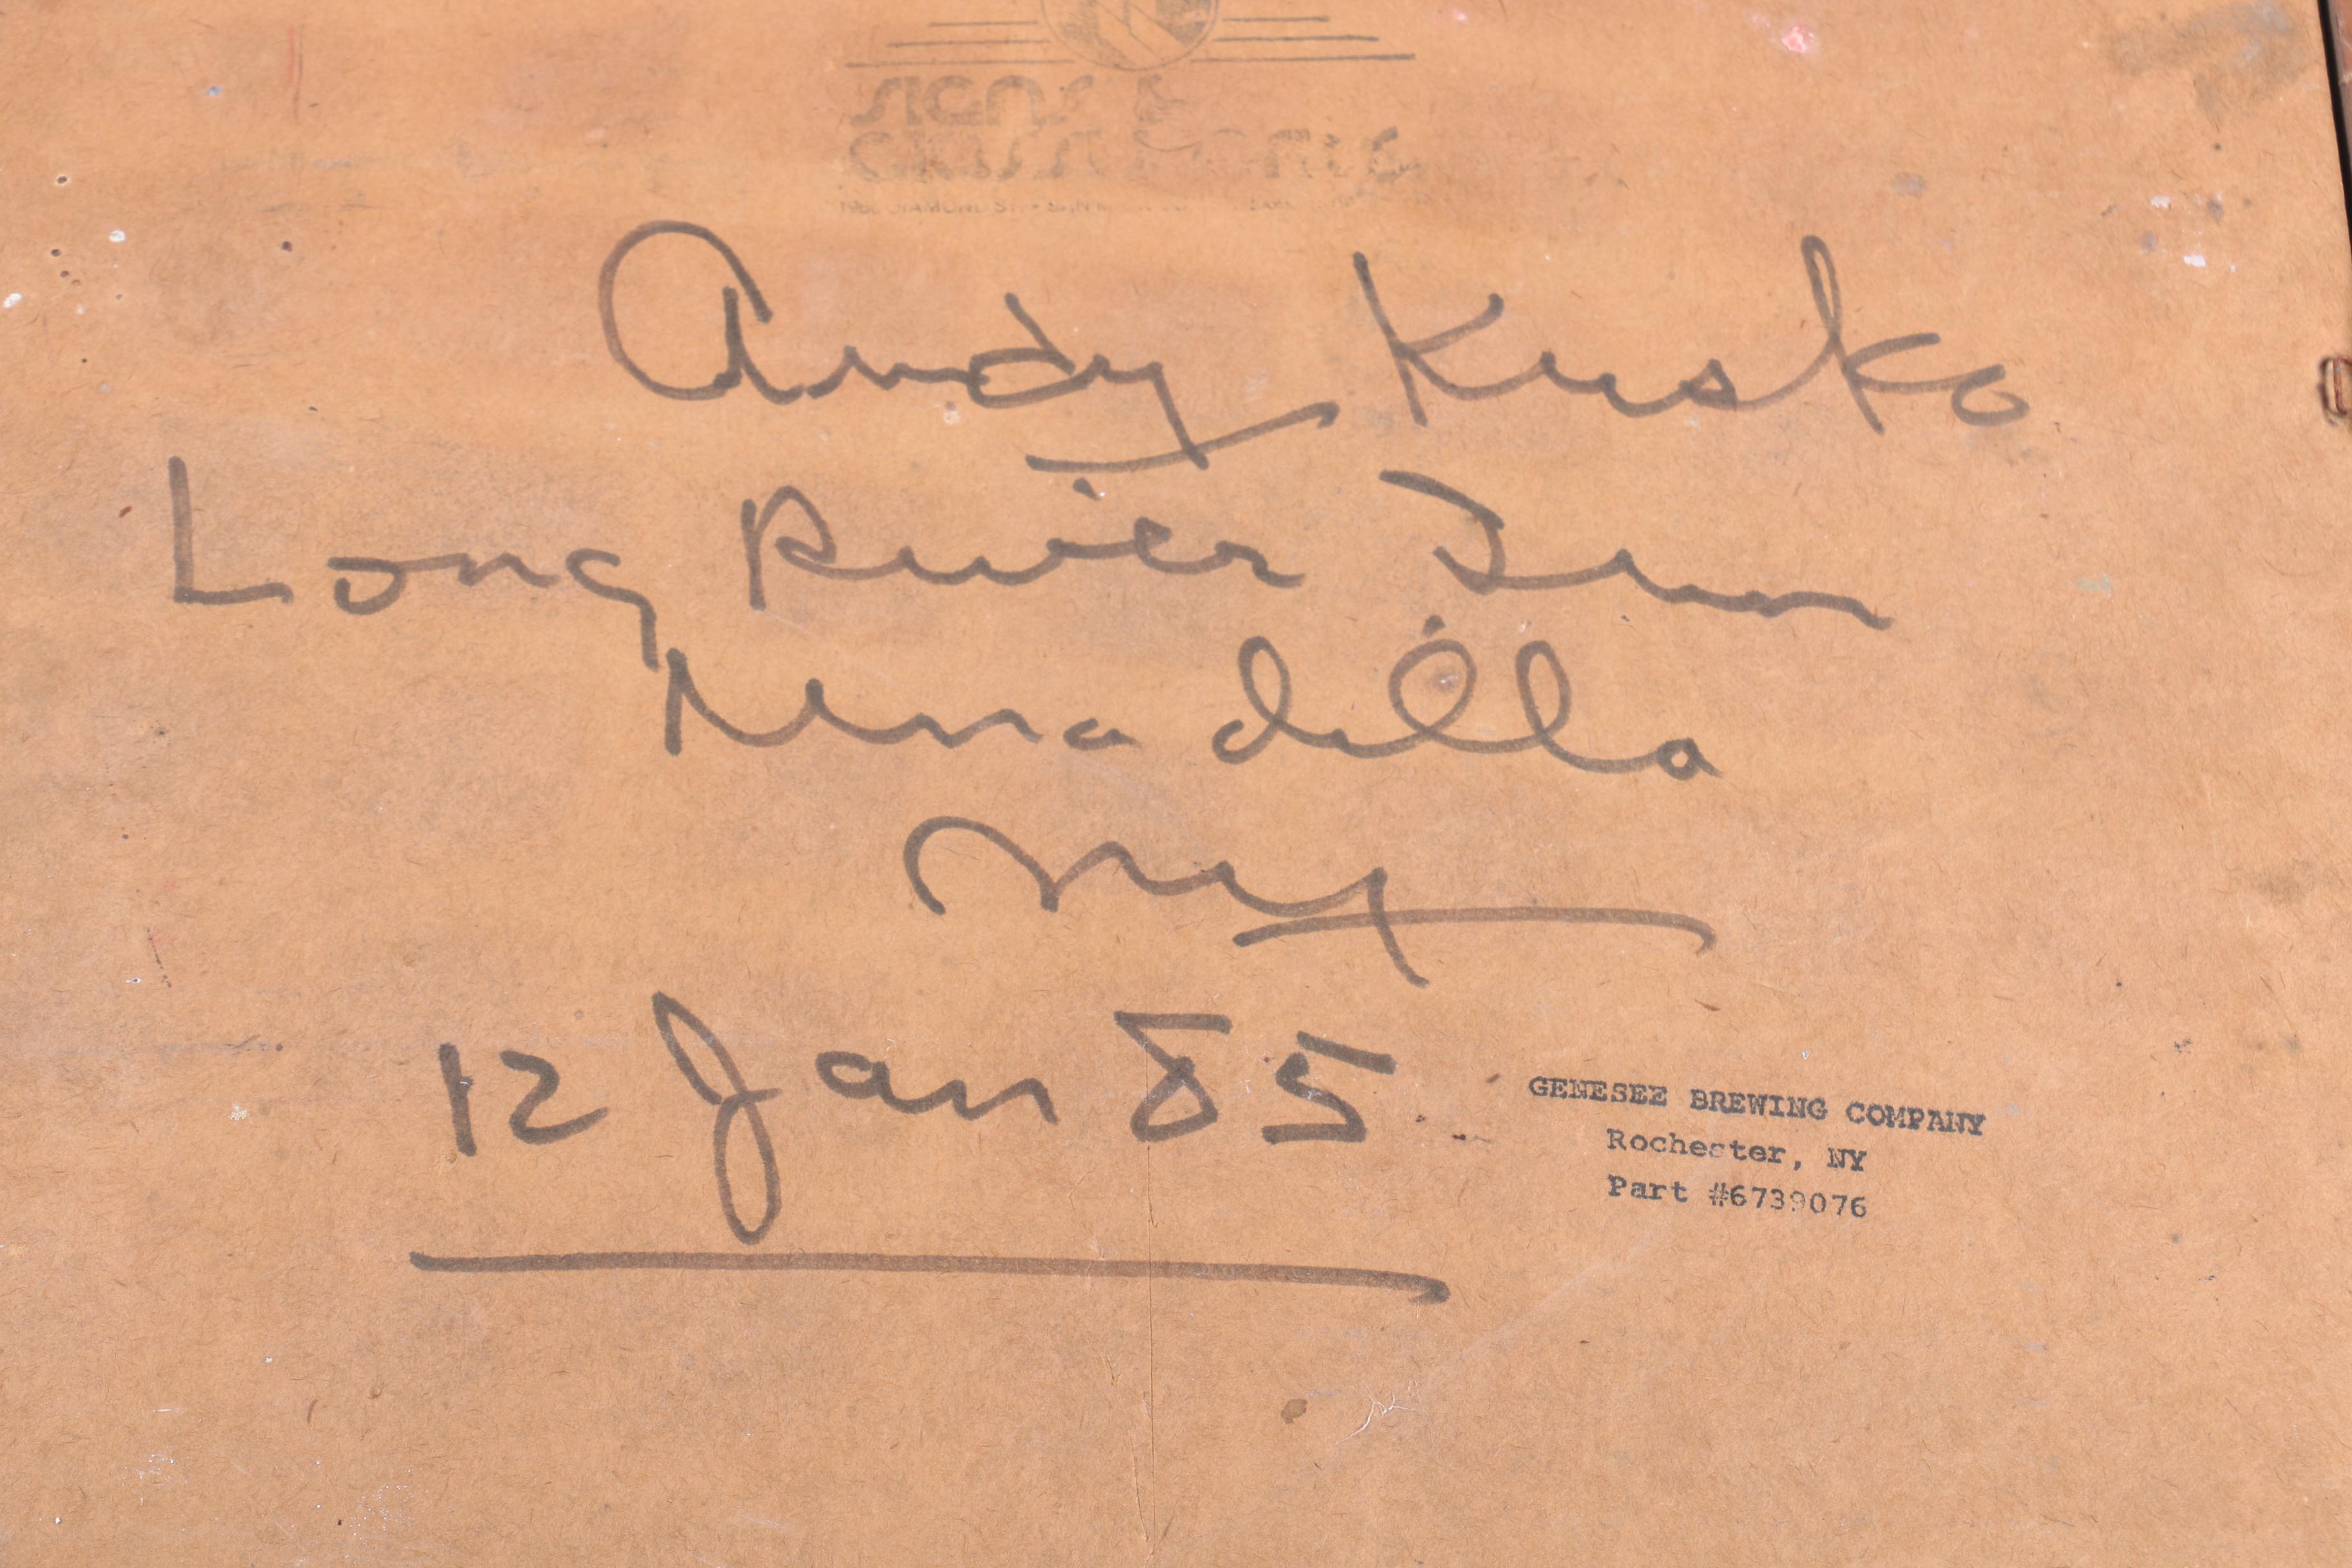 SIGNS &
DIAMOND ST.
Andy Kusko
Long River Inn
Unadilla
NY
12 Jan 85
GENESEE BREWING COMPANY
Rochester, NY
Part #6739076